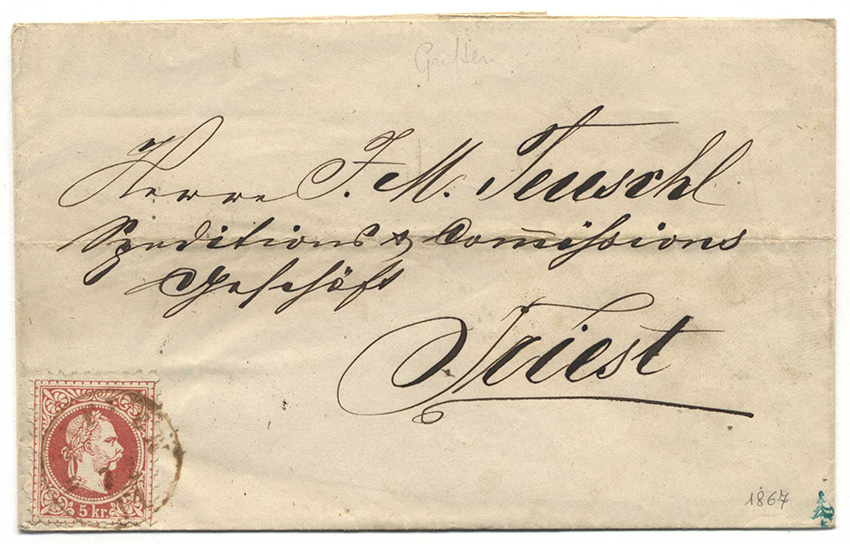 Griffen
Herrn J. M. Teuschl
Speditions & Com̅issions
Geschäft
Triest
5 kr.
1867